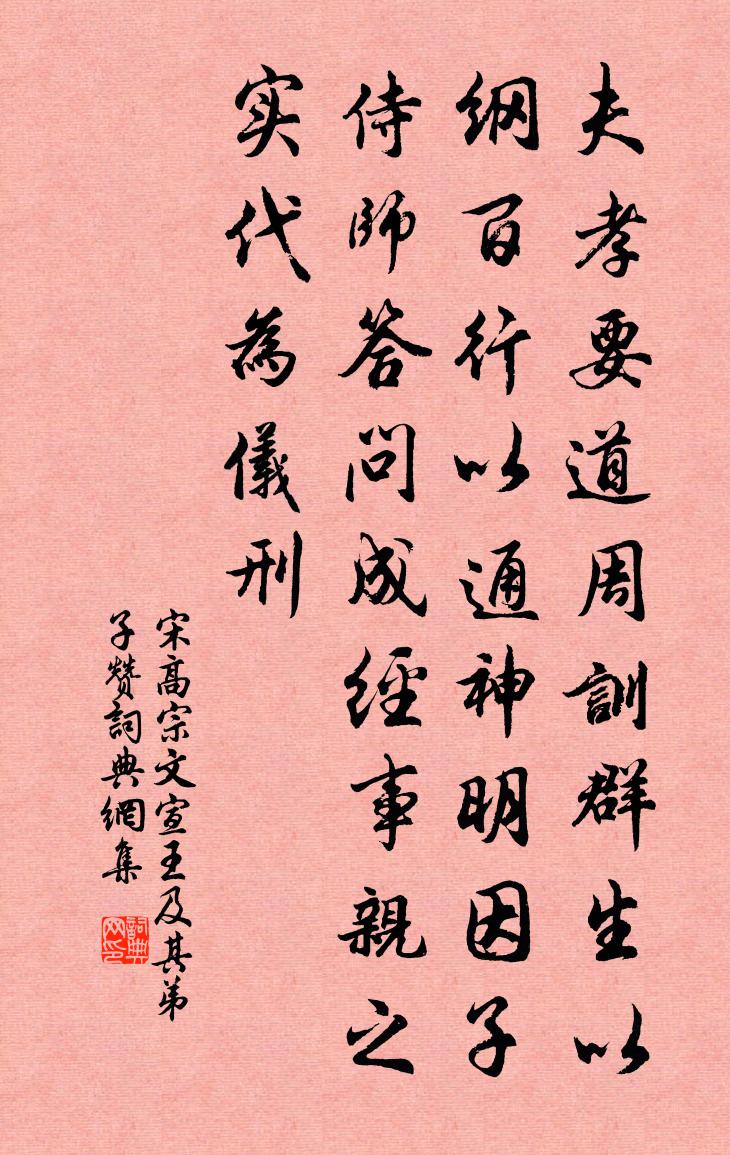 夫孝要道周訓群生以
纲百行以通神明因子
侍師答問成經事親之
实代為儀刑
宋高宗文宣王及其弟
子赞詞典網集
詞典网印